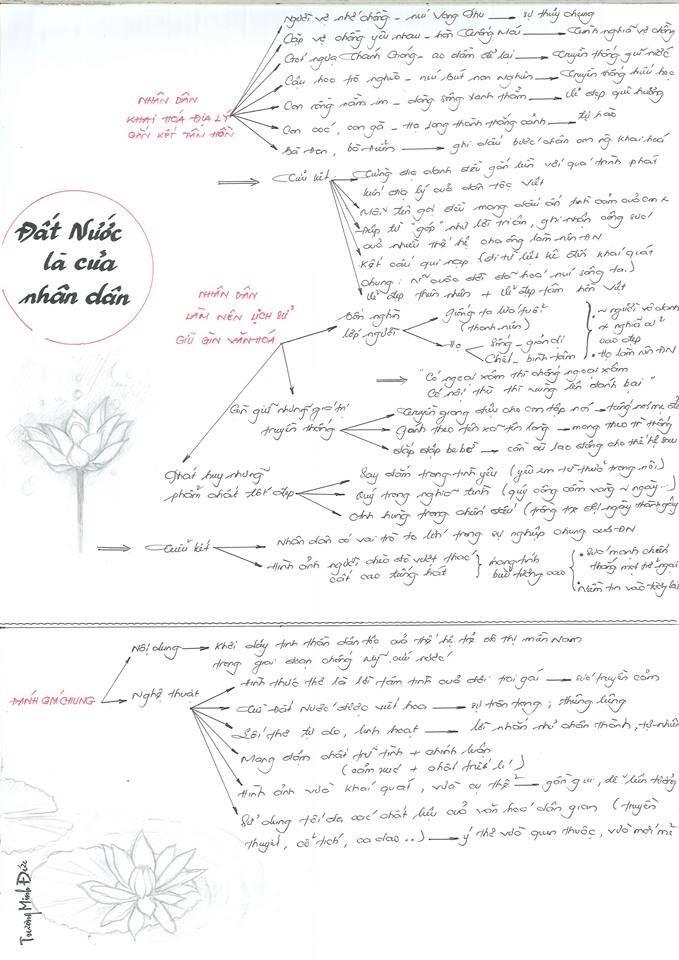 Đất Nước
là của
nhân dân
NHÂN DÂN
KHAI HOÁ ĐỊA LÝ
GẮN KẾT TÂM HỒN
Người vợ nhớ chồng - núi Vọng Phu → sự thủy chung
Cặp vợ chồng yêu nhau - hòn Trống Mái → tình nghĩa vợ chồng
Gót ngựa Thánh Gióng - ao đầm để lại → truyền thống giữ nước
Cậu học trò nghèo - núi Bút non Nghiên → truyền thống hiếu học
Con rồng nằm im - dòng sông xanh thẳm → vẻ đẹp quê hương
Con cóc, con gà - Hạ Long thành thắng cảnh → tự hào
Bà Đen, bà Điểm → ghi dấu bước chân ông khai hoá
⇒ Tiểu kết
Từng địa danh đều gắn liền với quá trình phát
kiến địa lý của dân tộc Việt
Mỗi tên gọi đều mang dấu ấn tình cảm của
Điệp từ "góp" như lời tri ân, ghi nhận công sức
của nhiều thế hệ cha ông làm nên ĐN
Kết cấu quy nạp (đi từ liệt kê đến khái quát
chung: đã hoá núi sông ta.)
Vẻ đẹp thiên nhiên + vẻ đẹp tâm hồn Việt
NHÂN DÂN
LÀM NÊN LỊCH SỬ
GIỮ GÌN VĂN HOÁ
Bốn nghìn
lớp người
giống ta lứa tuổi
(thanh niên)
Họ
Sống - giản dị
Chết - bình tâm
• người vô danh
cao đẹp
• Họ làm nên ĐN
⇒ "Có ngoại xâm thì chống ngoại xâm
Có nội thù thì vùng lên đánh bại"
Gìn giữ những giá trị
truyền thống
Truyền giọng điệu cho con tập nói →
Gánh theo tên xã tên làng → mang theo
đắp đập be bờ → lao động cho thế hệ sau
Phát huy những
phẩm chất tốt đẹp
Say đắm trong tình yêu (yêu em từ thuở trong nôi)
Quý trọng nghĩa tình (quý công cầm vàng ngày..)
Anh hùng trong chiến đấu (trồng tre đợi ngày thành gậy)
⇒ Tiểu kết
Nhân dân có vai trò to lớn trong sự nghiệp chung của ĐN
Hình ảnh người chèo đò vượt thác
cất cao tiếng hát
mang tính
biểu tượng cao
• Sức mạnh chiến
thắng mọi trở ngại
• Niềm tin vào tương lai
ĐÁNH GIÁ CHUNG
Nội dung → Khơi dậy tinh thần dân tộc của thế hệ trẻ đô thị miền Nam
trong giai đoạn chống Mỹ cứu nước
Nghệ thuật
Hình thức thơ là lời tâm tình của đôi trai gái → sức truyền cảm
Chữ Đất Nước được viết hoa → sự trân trọng, thiêng liêng
Lối thơ tự do, linh hoạt → lời nhắn nhủ chân thành, tự nhiên
Mang đậm chất trữ tình + chính luận
(cảm xúc + chất triết lí)
Hình ảnh vừa khái quát, vừa cụ thể → gần gũi, dễ liên tưởng
Sử dụng tối đa các chất liệu của văn học dân gian (truyền
thuyết, cổ tích, ca dao..) → ý thơ vừa quen thuộc, vừa mới mẻ
Trương Minh Đức